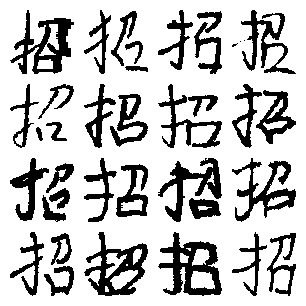 招招招招
招招招招
招招招招
招招招招